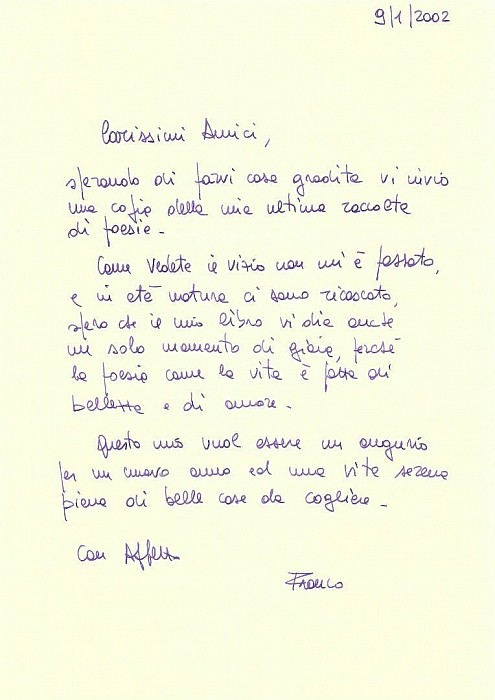 9/1/2002
Carissimi Amici,
sperando di farvi cosa gradita vi invio
una copia della mia ultima raccolta
di poesie.
Come vedete il vizio non mi è passato,
e in età matura ci sono ricascato,
spero che il mio libro vi dia anche
un solo momento di gioia, perché
la poesia come la vita è fatta di
bellezza e di amore.
Questo mio vuol essere un augurio
per un nuovo anno ed una vita serena
piena di belle cose da cogliere.
Con Affetto
Franco